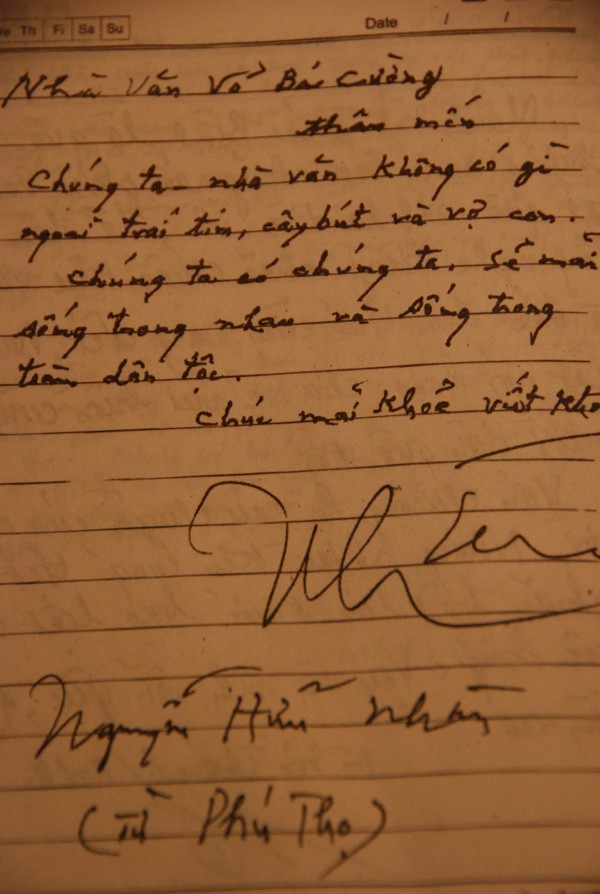 Th Fi Sa Su Date / /
Nhà văn Võ Bá Cường
thân mến
Chúng ta - nhà văn không có gì
ngoài trái tim, cây bút và vợ con.
Chúng ta có chúng ta. Sẽ mãi
sống trong nhau và sống trong
tâm dân tộc.
Chúc mãi khoẻ viết
Nguyễn Hữu Nhàn
(Từ Phú Thọ)